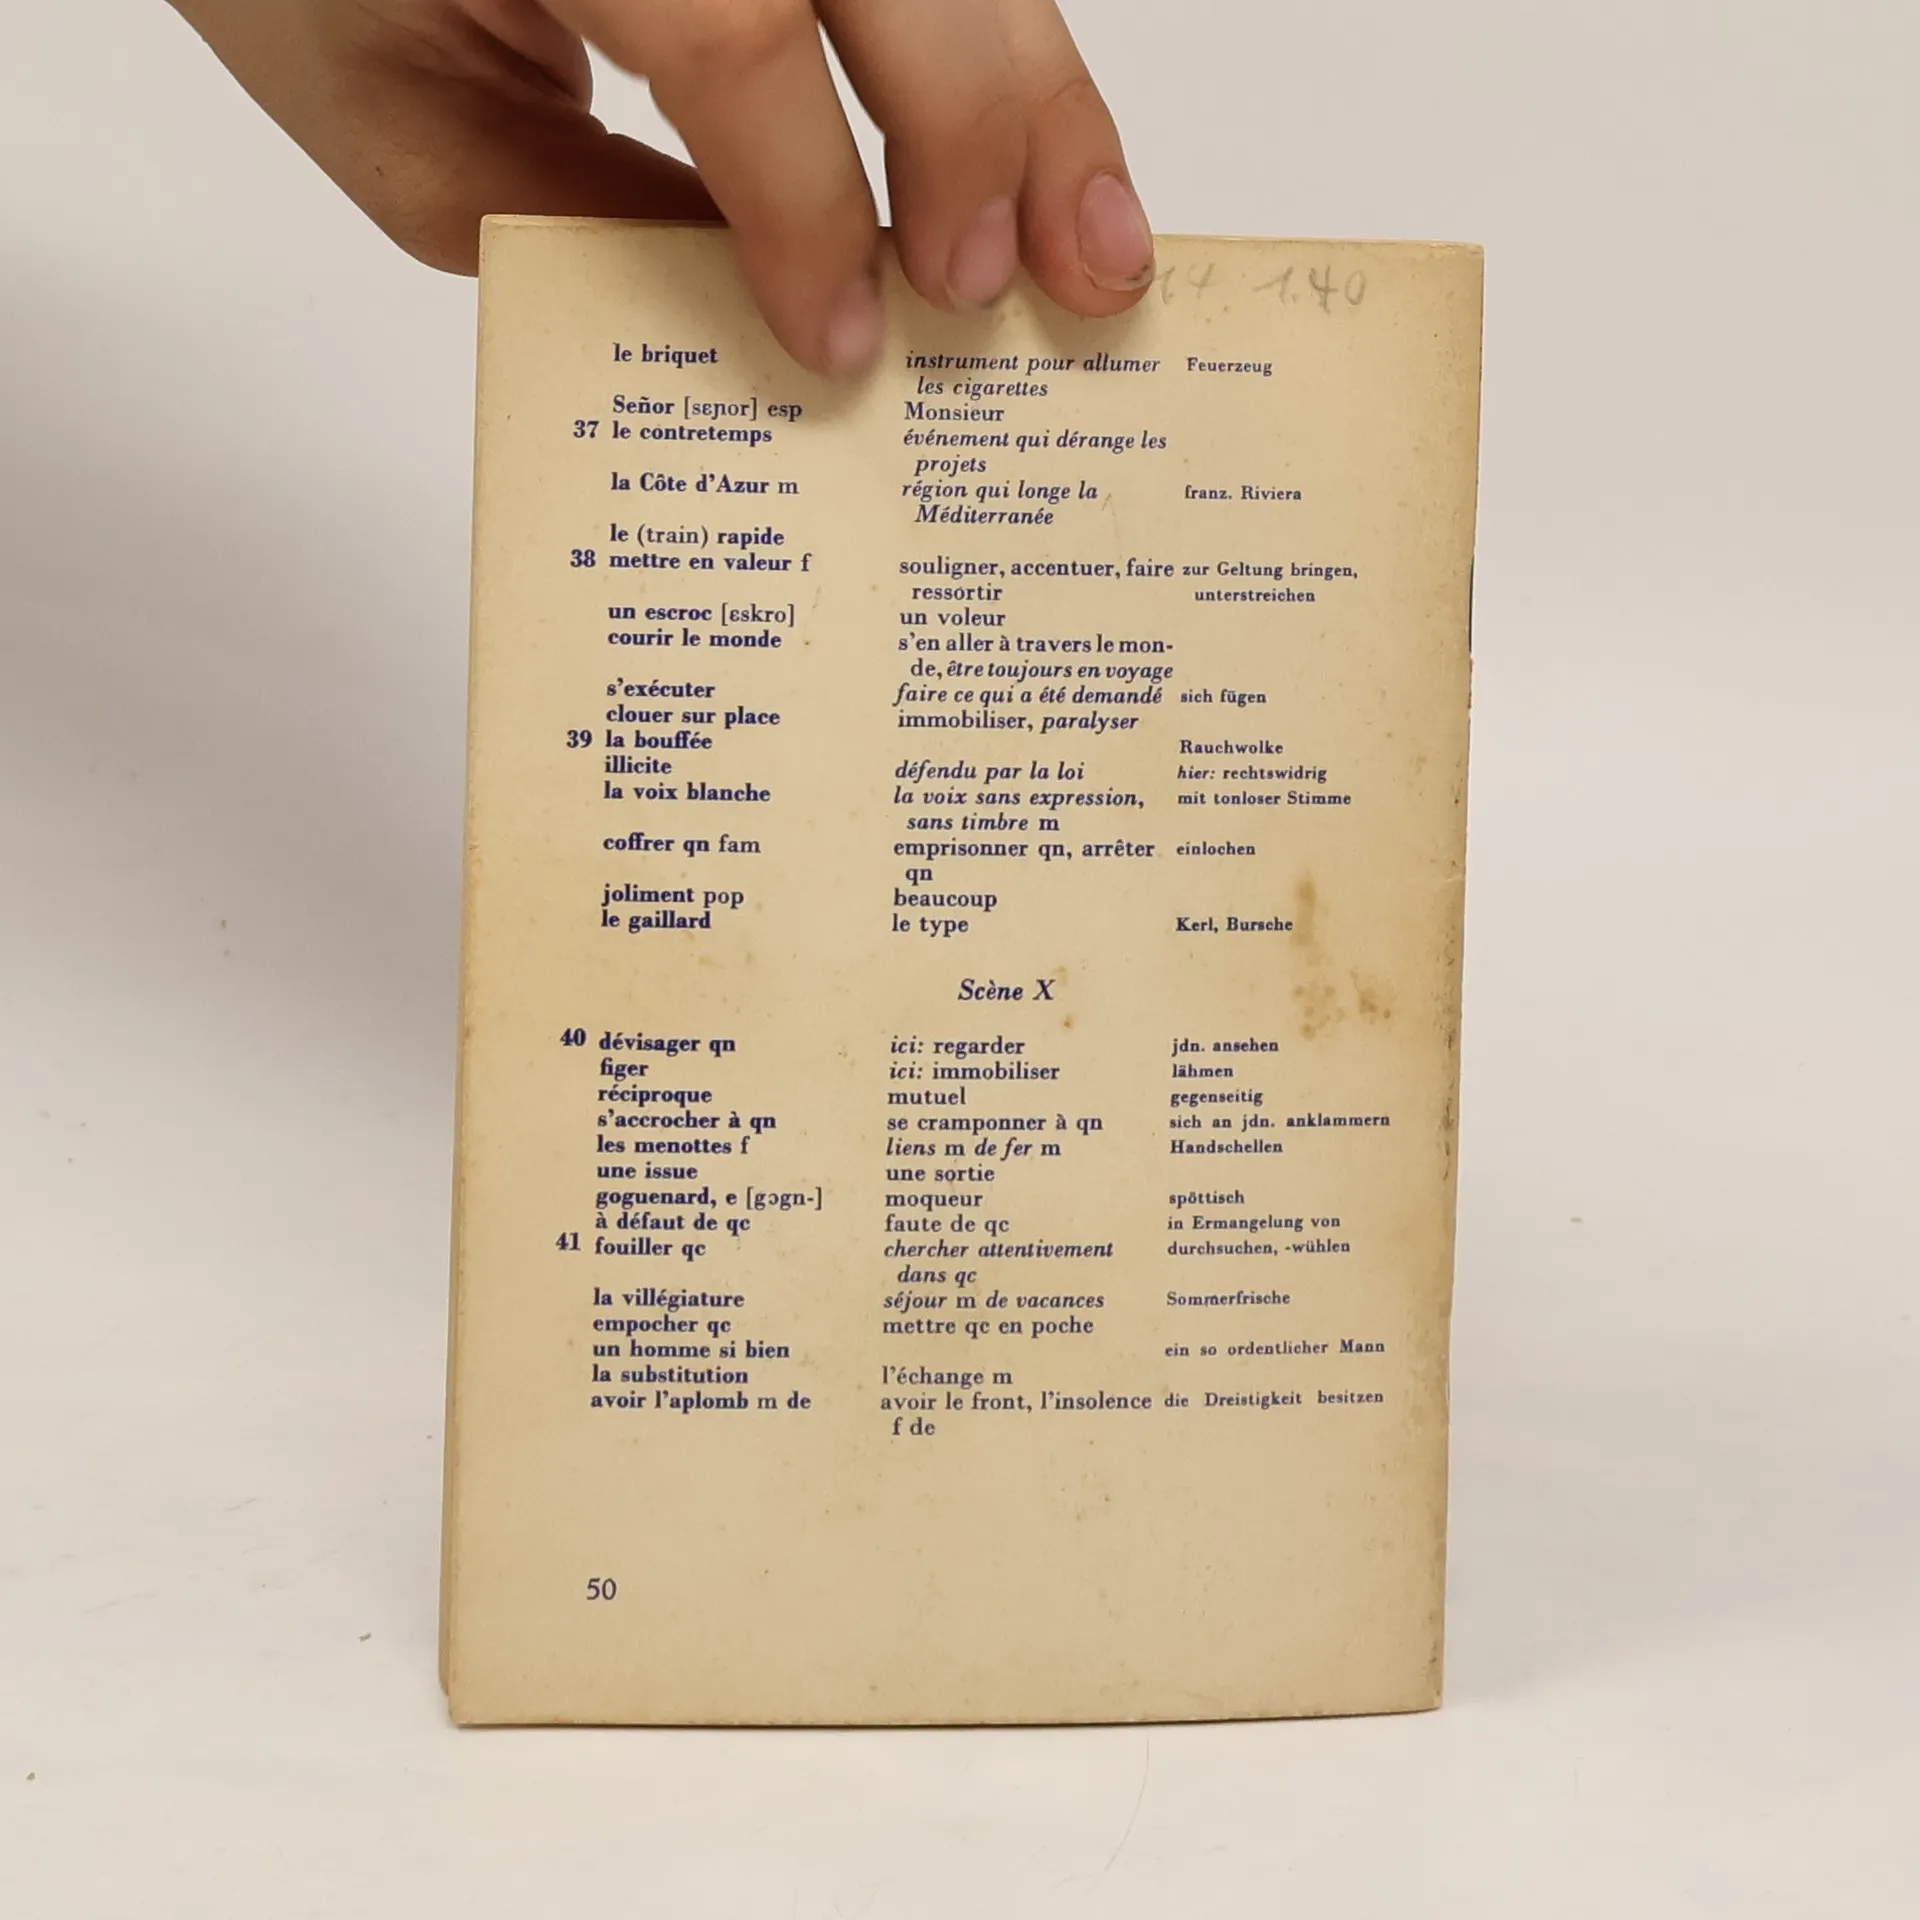 1.4 1.40
le briquet instrument pour allumer Feuerzeug
les cigarettes
Señor [sɛɲor] esp Monsieur
37 le contretemps événement qui dérange les
projets
la Côte d’Azur m région qui longe la franz. Riviera
Méditerranée
le (train) rapide
38 mettre en valeur f souligner, accentuer, faire zur Geltung bringen,
ressortir unterstreichen
un escroc [ɛskro] un voleur
courir le monde s’en aller à travers le mon-
de, être toujours en voyage
s’exécuter faire ce qui a été demandé sich fügen
clouer sur place immobiliser, paralyser
39 la bouffée Rauchwolke
illicite défendu par la loi hier: rechtswidrig
la voix blanche la voix sans expression, mit tonloser Stimme
sans timbre m
coffrer qn fam emprisonner qn, arrêter einlochen
qn
joliment pop beaucoup
le gaillard le type Kerl, Bursche
Scène X
40 dévisager qn ici: regarder jdn. ansehen
figer ici: immobiliser lähmen
réciproque mutuel gegenseitig
s’accrocher à qn se cramponner à qn sich an jdn. anklammern
les menottes f liens m de fer m Handschellen
une issue une sortie
goguenard, e [gɔgn-] moqueur spöttisch
à défaut de qc faute de qc in Ermangelung von
41 fouiller qc chercher attentivement durchsuchen, -wühlen
dans qc
la villégiature séjour m de vacances Sommerfrische
empocher qc mettre qc en poche
un homme si bien ein so ordentlicher Mann
la substitution l’échange m
avoir l’aplomb m de avoir le front, l’insolence die Dreistigkeit besitzen
f de
50